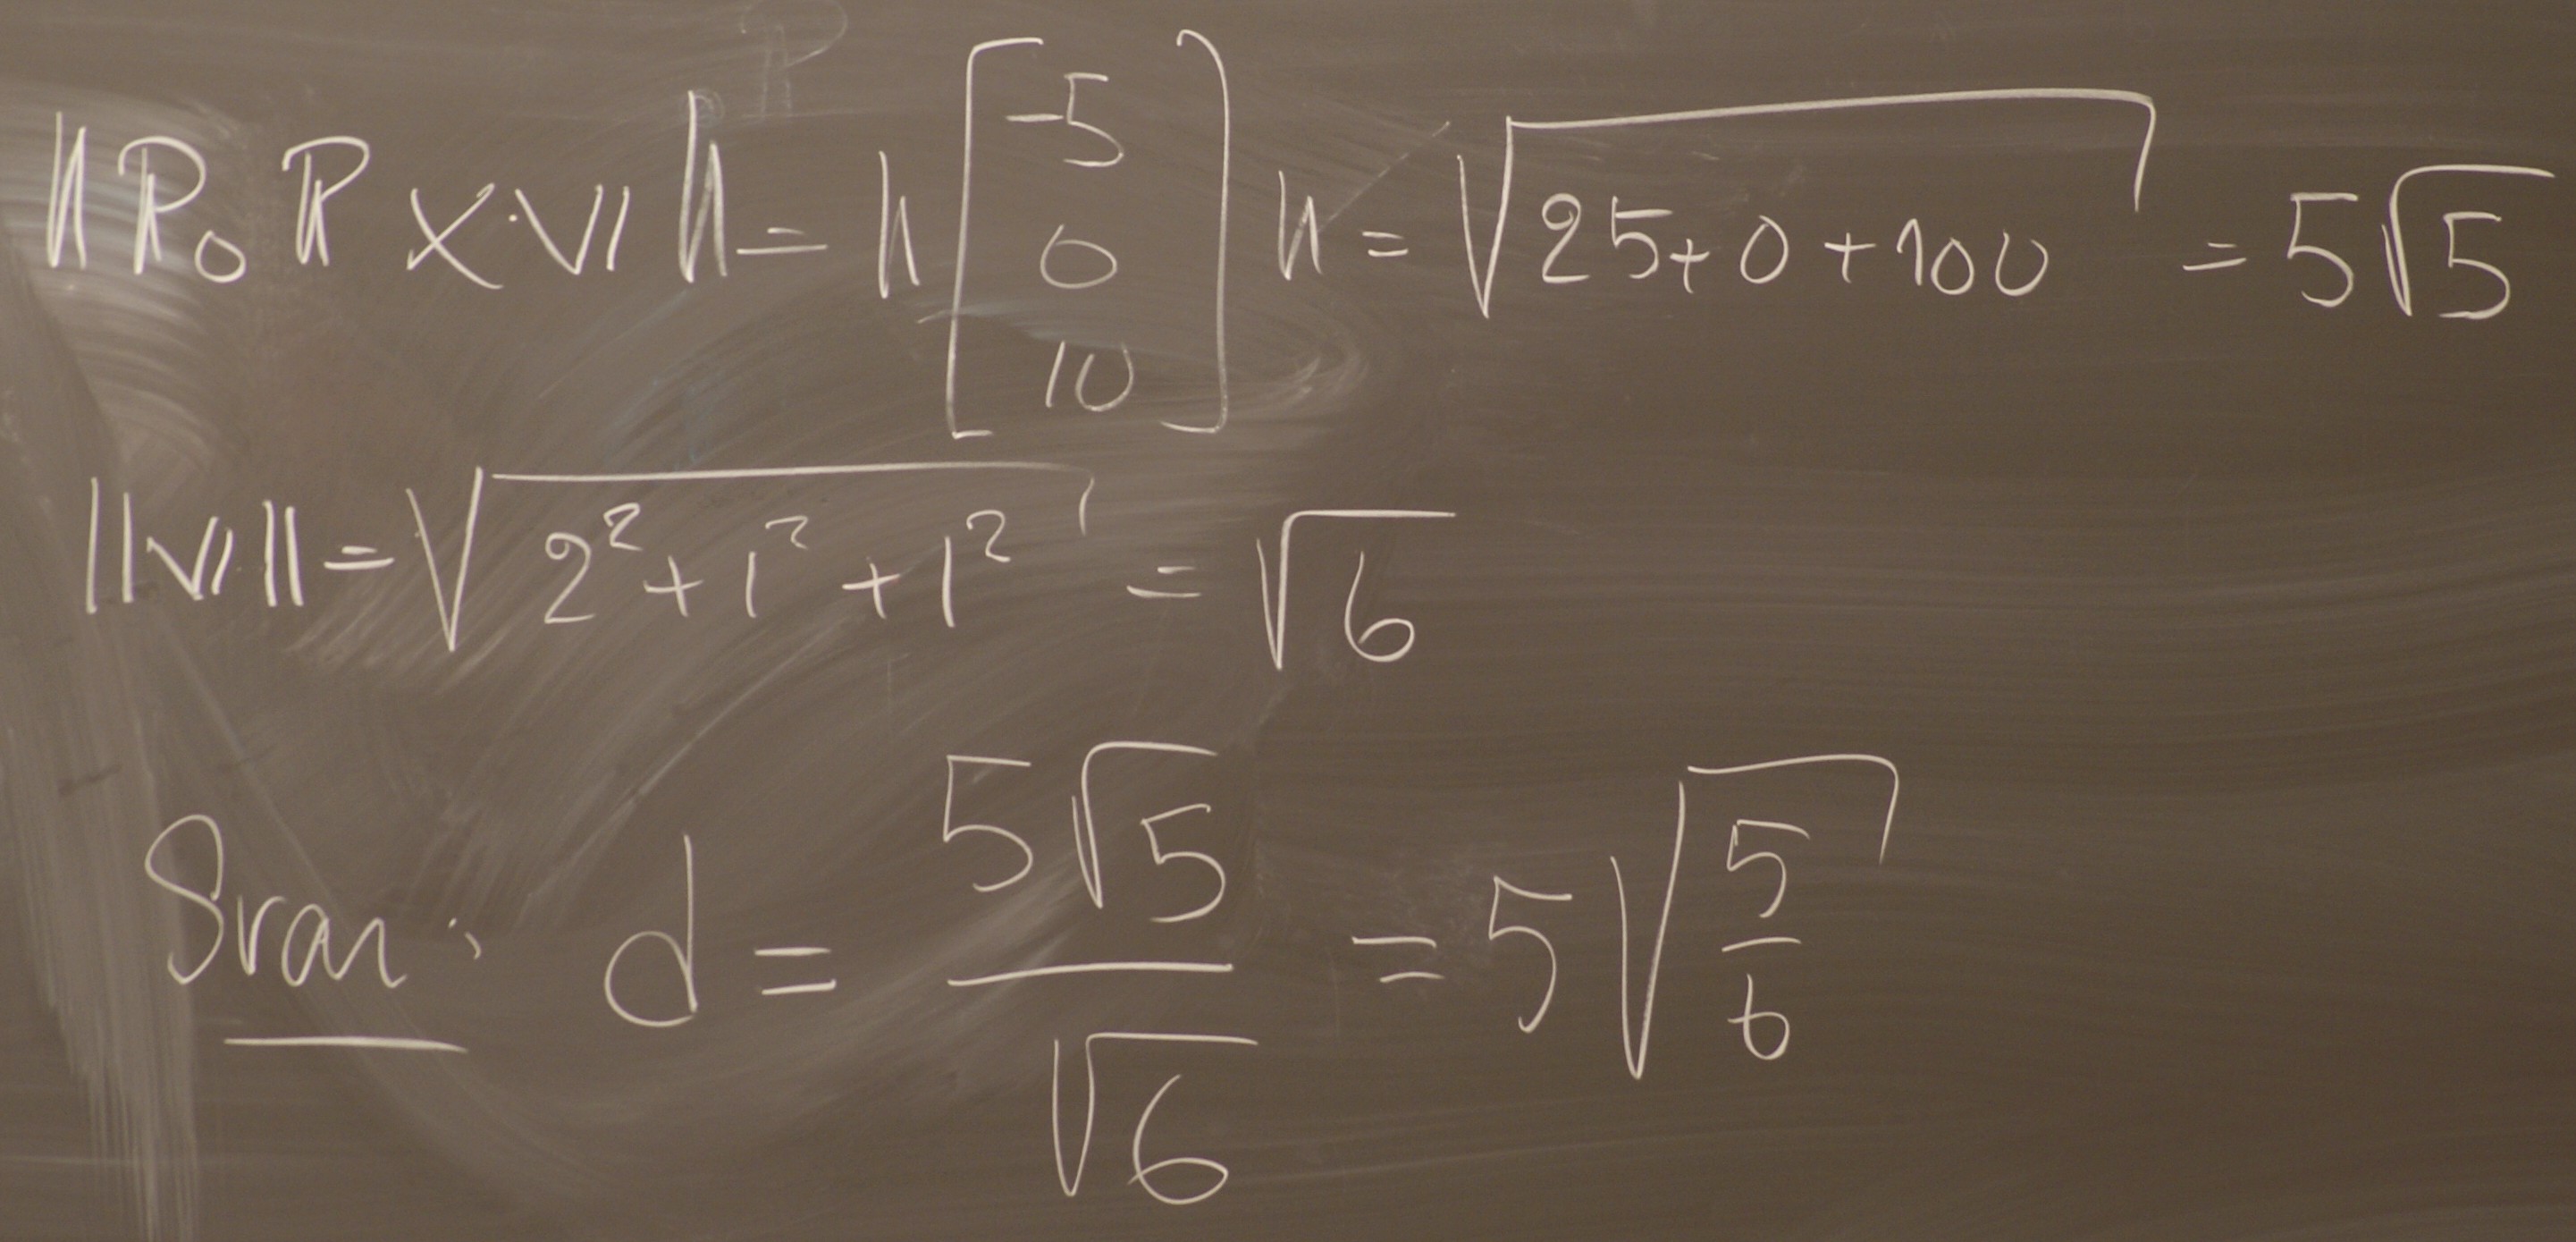 ‖P₀P × v‖ = ‖[-5 0 10]‖ = √(25+0+100) = 5√5
‖v‖ = √(2²+1²+1²) = √6
Svar: d = 5√5/√6 = 5√(5/6)